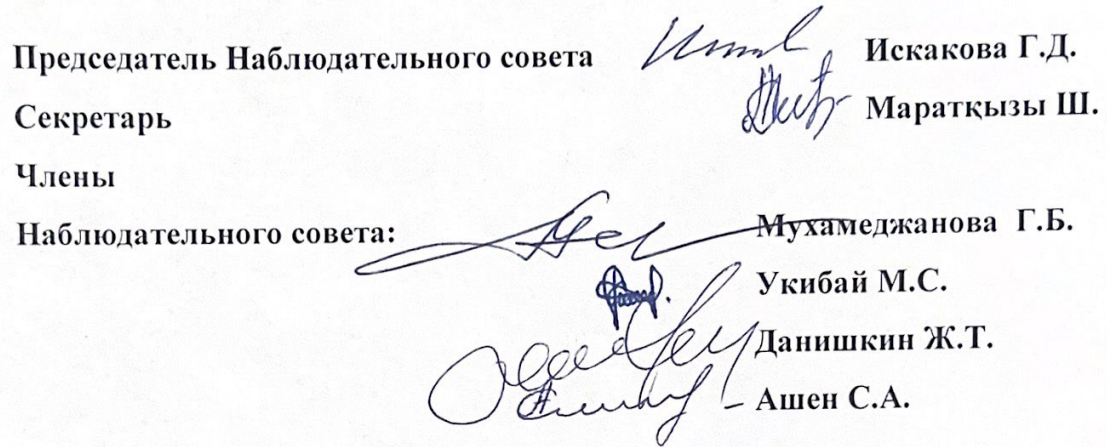 Председатель Наблюдательного совета Искакова Г.Д.
Секретарь Маратқызы Ш.
Члены
Наблюдательного совета: Мухамеджанова Г.Б.
Укибай М.С.
Данишкин Ж.Т.
Ашен С.А.